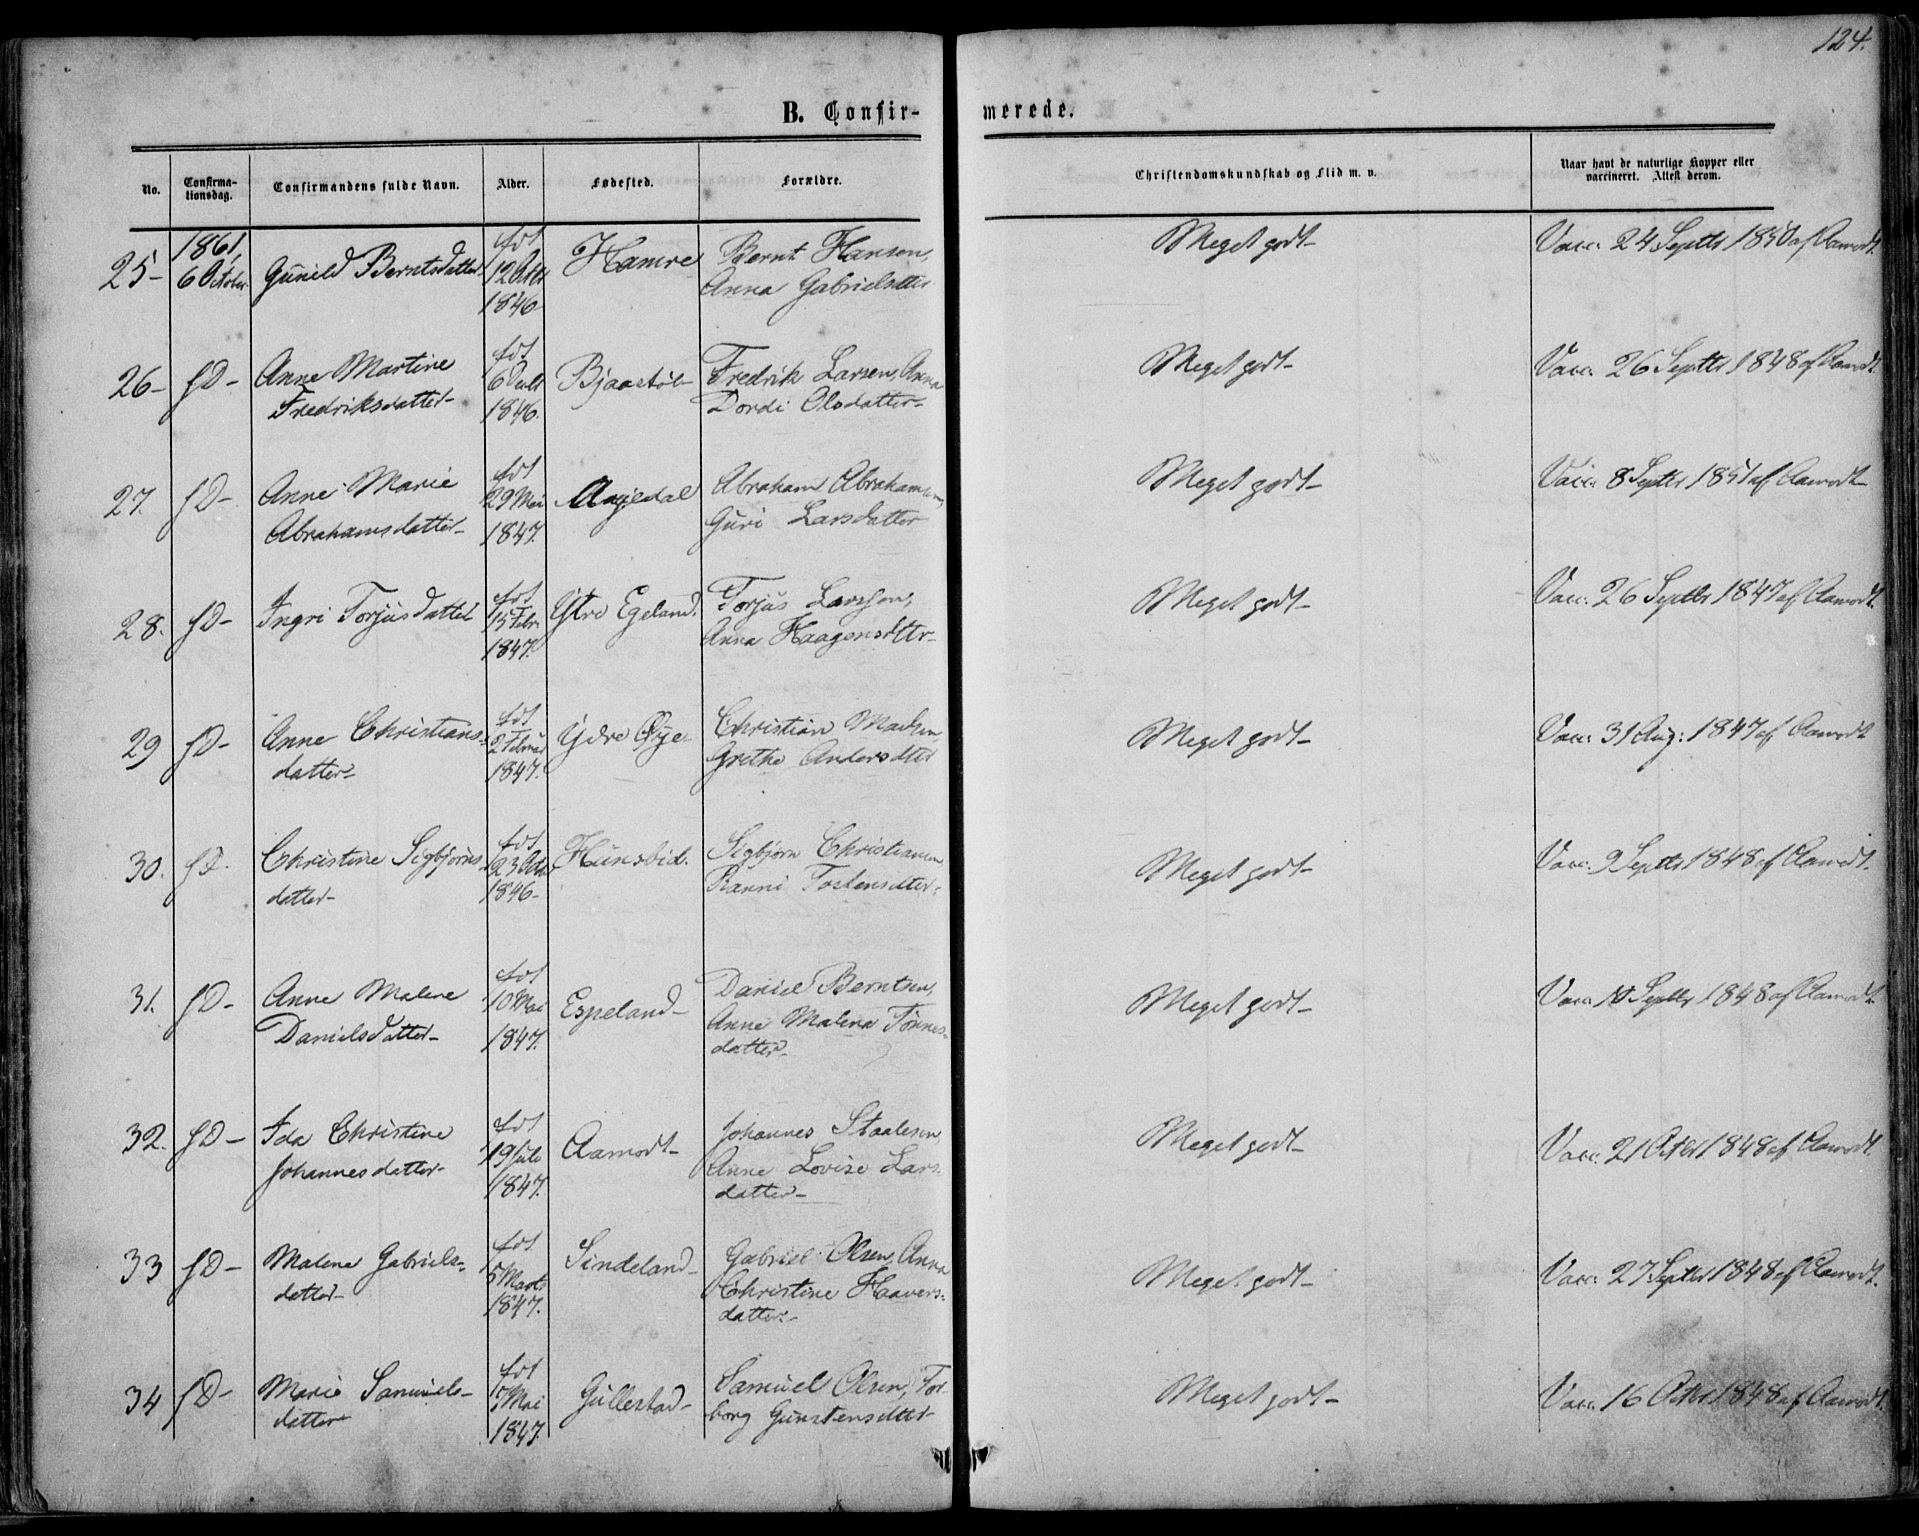 124.
B. Confir-
merede.
No.
Confirma-
tionsdag.
Confirmandens fulde Navn.
Alder.
Fødested.
Forældre.
Christendomskundskab og Flid m. v.
Naar havt de naturlige Kopper eller
vaccineret. Attest derom.
25-
1861,
6 October
Gunild Berntsdatter
fdt
12 Octbr
1846
Hamre
Bernt Hansen,
Anna Gabrielsdtter
Meget godt-
Vacc. 24 Septbr 1850 af Aamodt.
26-
s D-
Anne Martine
Fredriksdatter-
fdt
6
1846.
Bjaastøl-
Fredrik Larsen, Anna
Dordi Olsdatter-
Meget godt-
Vacc. 26 Septbr 1848 af Aamodt.
27.
s D-
Anne Marie
Abrahamsdatter-
fdt
29 Mai
1847.
Abraham Abrahamsen,
Guri Larsdatter
Meget godt-
Vacc. 8 Septbr 1851 af Aamodt-
28.
s D-
Ingri Torjusdatter
fdt
15 Febr.
1847.
Ytre Egeland.
Torjus Larssen,
Anna Haagensdttr-
Meget godt-
Vacc. 26 Septbr 1847 af Aamodt.
29
s D-
Anne Christians-
datter-
fdt
2 Februar
1847.
Ydre Øye-
Christian Madsen
Grethe Andersdtter
Meget godt-
Vacc. 31 Aug: 1847 af Aamodt
30.
s D.
Christine Sigbjørns
datter-
fdt
23 Octbr
1846-
Hunsbid.
Sigbjørn Christiansen
Ranni Tostensdtter-
Meget godt-
Vacc. 9 Septbr 1848 af Aamodt.
31.
s D-
Anne Malene
Danielsdatter-
fdt
10 Mai
1847.
Espeland-
Daniel Berntsen,
Anne Malena Tønnes-
datter-
Meget godt-
Vacc. 10 Septbr 1848 af Aamodt.
32.
s D-
Ida Christine
Johannesdatter-
fdt
19 Juli
1847.
Aamodt-
Johannes Staalesen,
Anne Lovise Lars
datter-
Meget godt-
Vacc. 21 Octbr 1848 af Aamodt.
33
s D-
Malene Gabriels-
datter-
fdt
5 Marts
1847.
Sindeland-
Gabriel Olsen, Anna
Christine Haavers-
datter-
Meget godt-
Vacc. 27 Septbr 1848 af Aamodt.
34
s D-
Marie Samuels-
datter
fdt
Mai
1847.
Gullestad-
Samuel Olsen, Tor-
borg Gunstensdtter-
Meget godt-
Vacc. 16 Octbr 1848 af Aamodt.